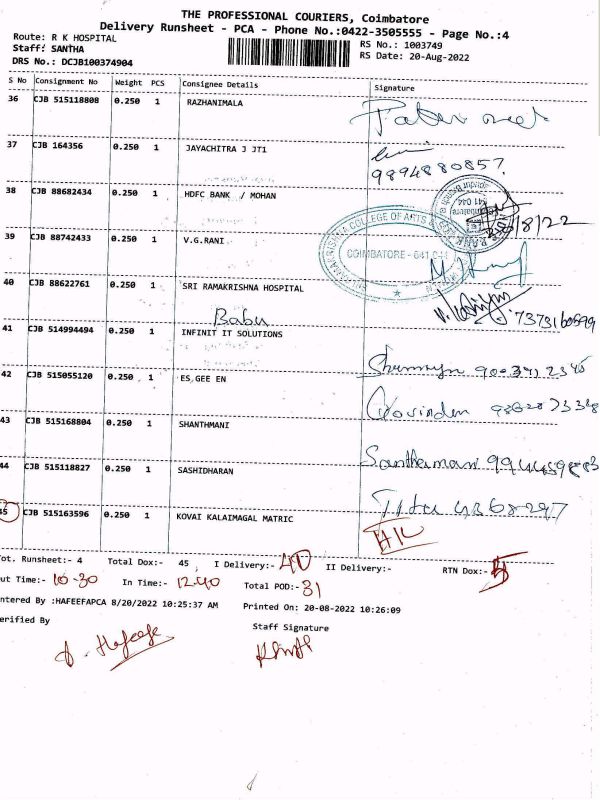 THE PROFESSIONAL COURIERS, Coimbatore
Delivery Runsheet - PCA - Phone No.:0422-3505555 - Page No.:4
Route: R K HOSPITAL
RS No.: 1003749
Staff: SANTHA
RS Date: 20-Aug-2022
DRS No.: DCJB100374904
S No Consignment No Weight PCS Consignee Details Signature
36 CJB 515118808 0.250 1 RAZHANIMALA
37 CJB 164356 0.250 1 JAYACHITRA J JT1
9894880857
38 CJB 88682434 0.250 1 HDFC BANK / MOHAN
/8/22
39 CJB 88742433 0.250 1 V.G.RANI
COLLEGE OF ARTS
COIMBATORE - 641
40 CJB 88622761 0.250 1 SRI RAMAKRISHNA HOSPITAL
Babu
41 CJB 514994494 0.250 1 INFINIT IT SOLUTIONS
42 CJB 515055120 0.250 1 ES GEE EN
43 CJB 515168804 0.250 1 SHANTHMANI
44 CJB 515118827 0.250 1 SASHIDHARAN
45 CJB 515163596 0.250 1 KOVAI KALAIMAGAL MATRIC
Tot. Runsheet:- 4 Total Dox:- 45 I Delivery:- 40 II Delivery:- RTN Dox:- 5
Out Time:- 10-30 In Time:- 12.40 Total POD:- 31
Entered By :HAFEEFAPCA 8/20/2022 10:25:37 AM Printed On: 20-08-2022 10:26:09
Verified By Staff Signature